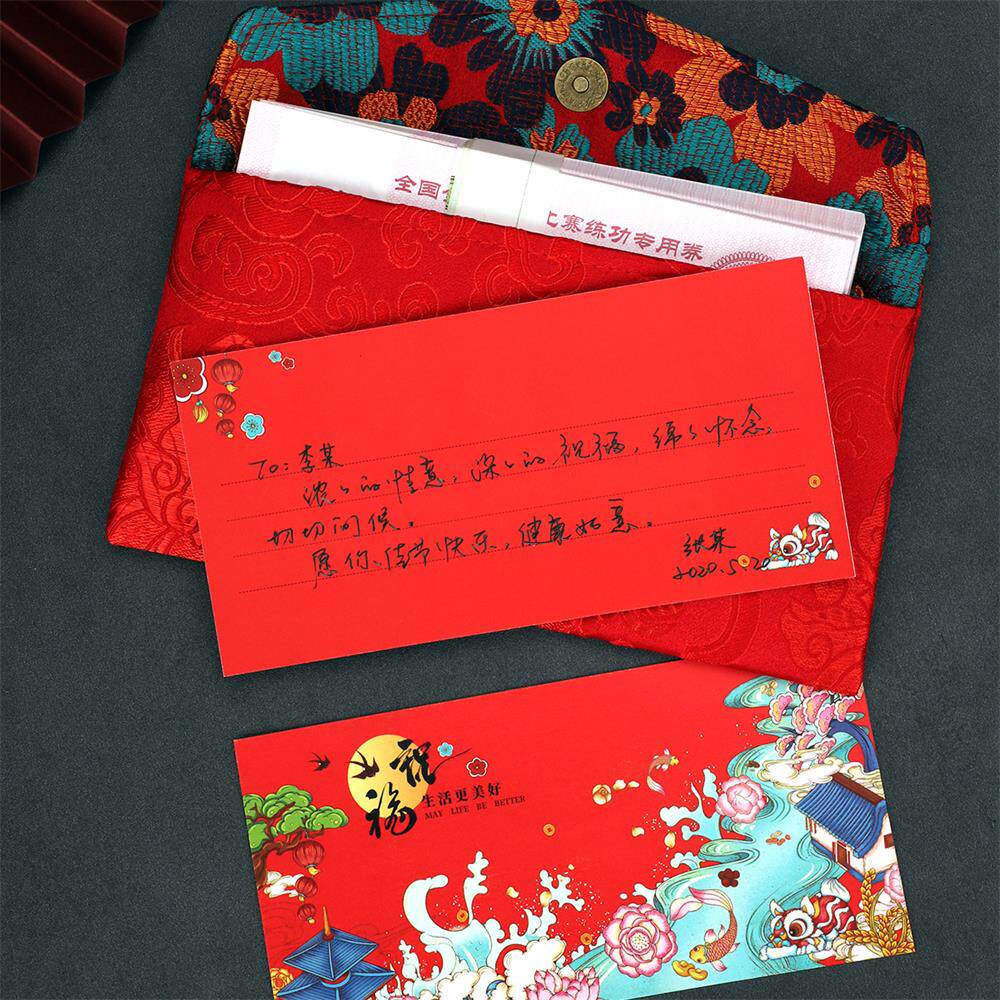 全国 匕赛练功专用券
To: 李某
浓浓的情意，深深的祝福，绵绵怀念，
切切问候。
愿你佳节快乐，健康如意。
纸某
2020.5.20
祝福
生活更美好
MAY LIFE BE BETTER